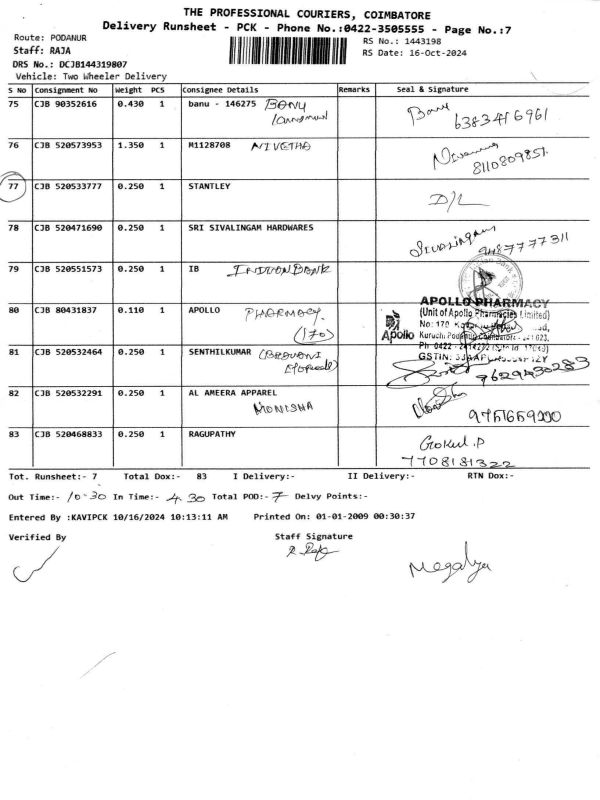 THE PROFESSIONAL COURIERS, COIMBATORE
Delivery Runsheet - PCK - Phone No.:0422-3505555 - Page No.:7
Route: PODANUR
RS No.: 1443198
Staff: RAJA
RS Date: 16-Oct-2024
DRS No.: DCJB144319807
Vehicle: Two Wheeler Delivery
S No Consignment No Weight PCS Consignee Details Remarks Seal & Signature
75 CJB 90352616 0.430 1 banu - 146275 BANU Banu
6383416961
76 CJB 520573953 1.350 1 M1128708 NIVETHA
8110809857
77 CJB 520533777 0.250 1 STANTLEY D/L
78 CJB 520471690 0.250 1 SRI SIVALINGAM HARDWARES Sivalingam
9487777311
79 CJB 520551573 0.250 1 IB INDIAN BANK
80 CJB 80431837 0.110 1 APOLLO PHARMACY
(170)
APOLLO PHARMACY
(Unit of Apollo Pharmacies Limited)
No: 170
Apollo Kuruchi, Podanur Coimbatore
GSTIN:
81 CJB 520532464 0.250 1 SENTHILKUMAR
9629430283
82 CJB 520532291 0.250 1 AL AMEERA APPAREL
MONISHA
83 CJB 520468833 0.250 1 RAGUPATHY Gokul.P
7708181322
Tot. Runsheet:- 7 Total Dox:- 83 I Delivery:- II Delivery:- RTN Dox:-
Out Time:- 10-30 In Time:- 4.30 Total POD:- 7 Delvy Points:-
Entered By :KAVIPCK 10/16/2024 10:13:11 AM Printed On: 01-01-2009 00:30:37
Verified By Staff Signature
R. Raja
Megalya